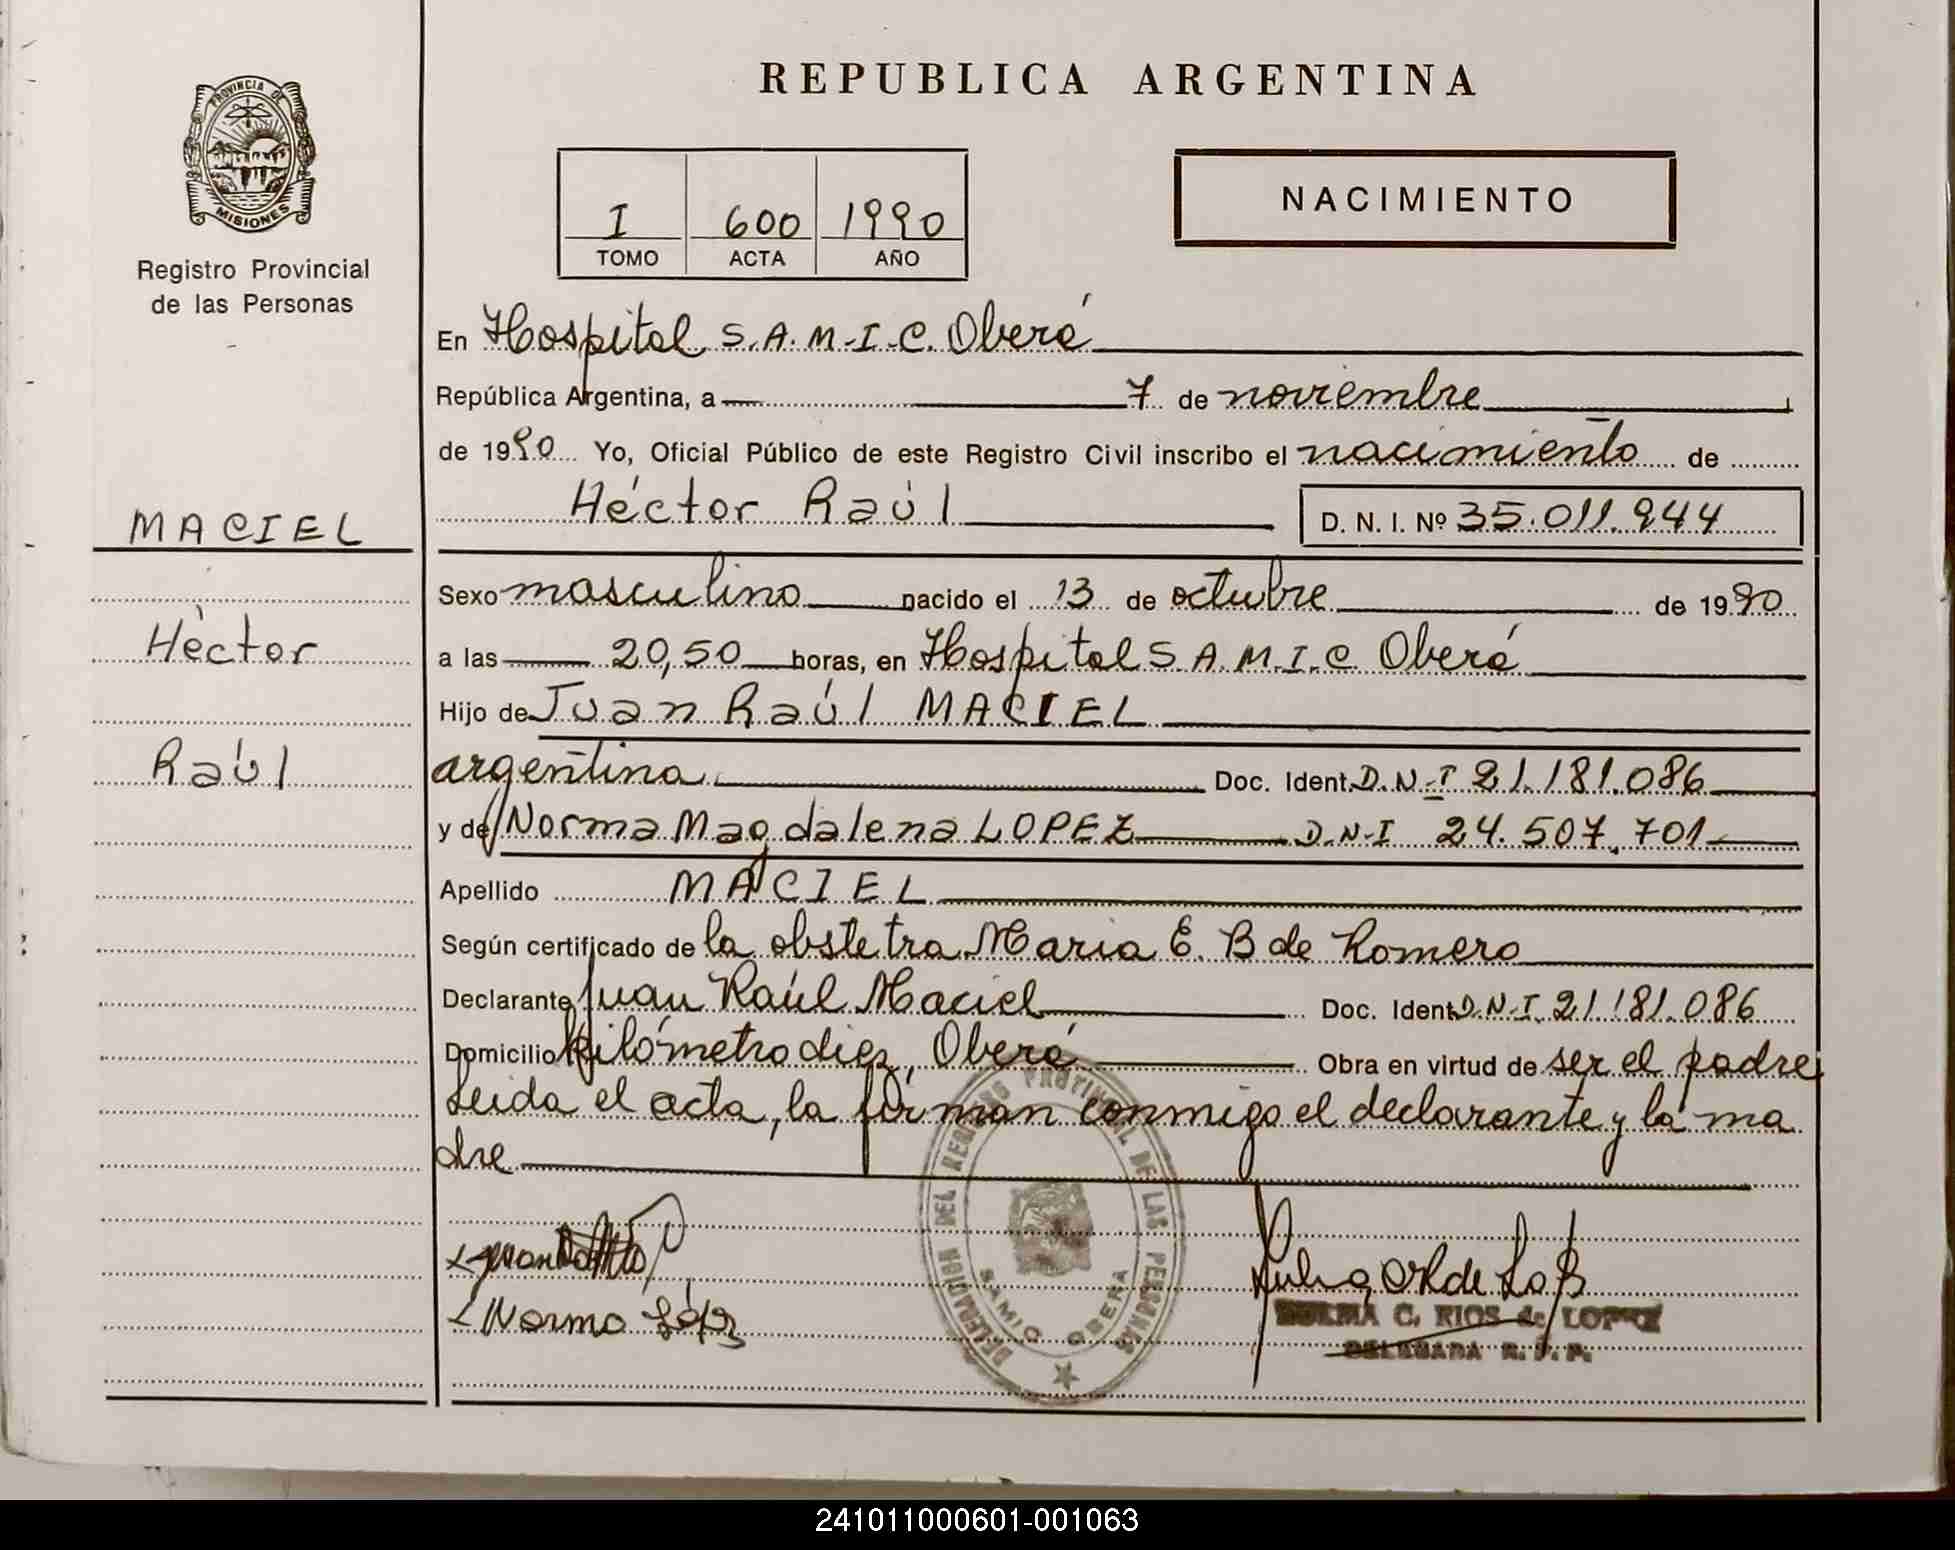 REPUBLICA ARGENTINA
PROVINCIA DE
MISIONES
Registro Provincial
de las Personas
NACIMIENTO
I 600 1990
TOMO ACTA AÑO
En Hospital S.A.M.I.C. Oberá
República Argentina, a 7 de noviembre
de 1990 Yo, Oficial Público de este Registro Civil inscribo el nacimiento de
Héctor Raúl D. N. I. Nº 35.011.944
MACIEL
Héctor
Raúl
Sexo masculino nacido el 13 de octubre de 1990
a las 20,50 horas, en Hospital S.A.M.I.C. Oberá
Hijo de Juan Raúl MACIEL
argentina Doc. Ident. D.N.I 21.181.086
y de Norma Magdalena LOPEZ D.N.I 24.507.701
Apellido MACIEL
Según certificado de la obstetra Maria E. B de Romero
Declarante Juan Raúl Maciel Doc. Ident. D.N.I. 21.181.086
Domicilio kilómetro diez, Oberá Obra en virtud de ser el padre
Leida el acta, la firman conmigo el declarante y la ma
dre
DELEGACION DEL REGISTRO PROVINCIAL DE LAS PERSONAS
SAMIC OBERA
Norma López
C. RIOS de LOPEZ
DELEGADA R. P. P.
241011000601-001063